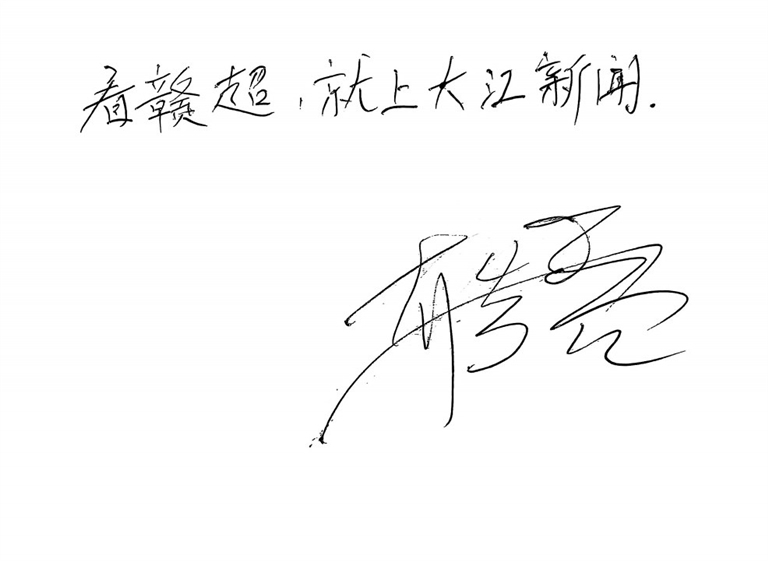 看赣超,就上大江新闻.